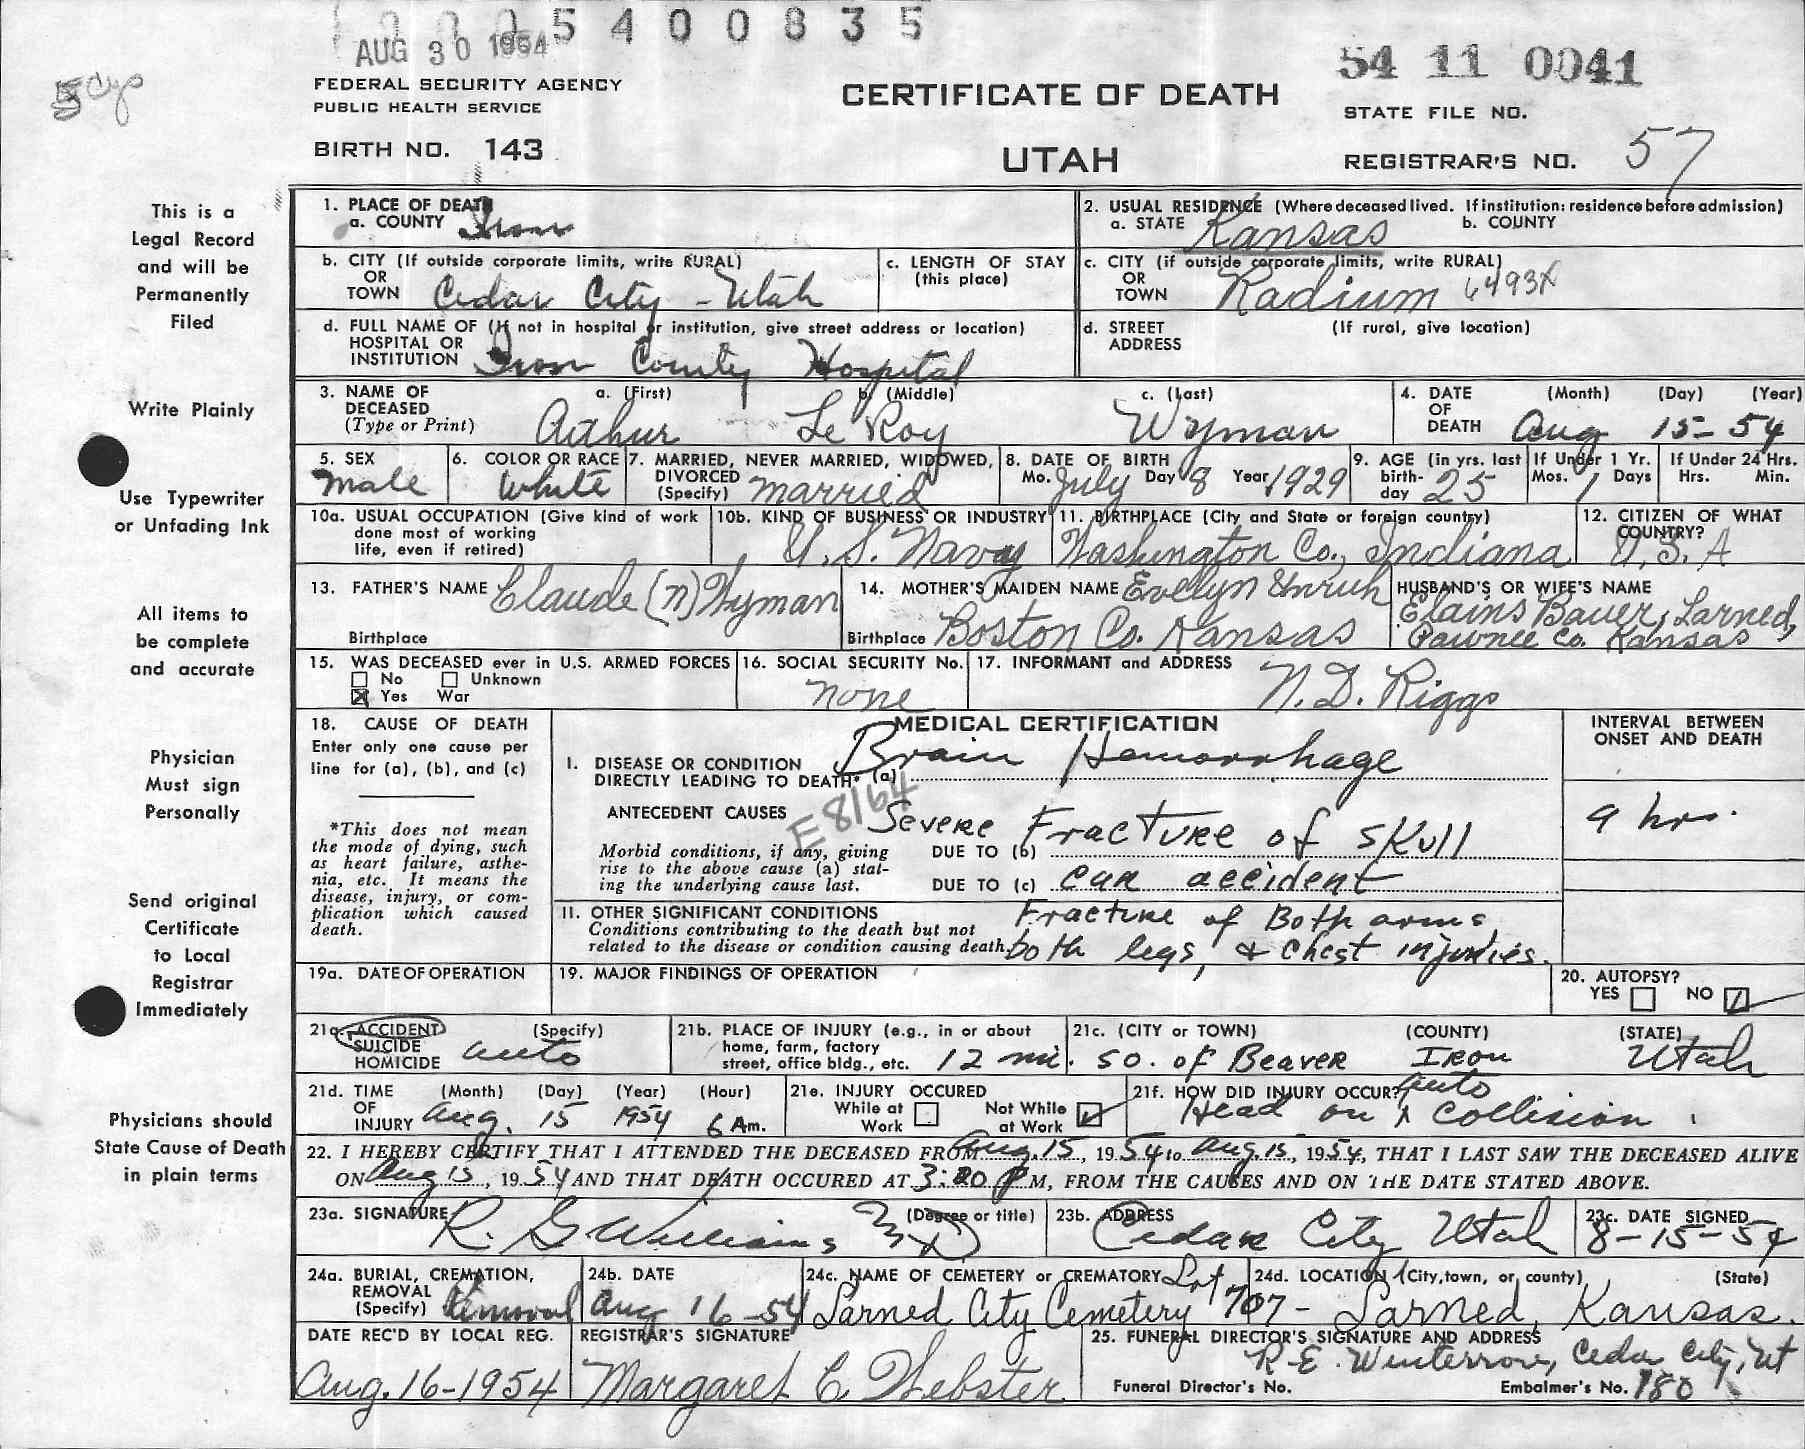 0005400835
AUG 30 1954
54 11 0041
FEDERAL SECURITY AGENCY
PUBLIC HEALTH SERVICE
CERTIFICATE OF DEATH
STATE FILE NO.
BIRTH NO. 143
UTAH
REGISTRAR'S NO. 57
This is a
Legal Record
and will be
Permanently
Filed
Write Plainly
Use Typewriter
or Unfading Ink
All items to
be complete
and accurate
Physician
Must sign
Personally
Send original
Certificate
to Local
Registrar
Immediately
Physicians should
State Cause of Death
in plain terms
1. PLACE OF DEATH
a. COUNTY Iron
2. USUAL RESIDENCE (Where deceased lived. If institution: residence before admission)
a. STATE Kansas b. COUNTY
b. CITY (If outside corporate limits, write RURAL)
OR
TOWN Cedar City - Utah
c. LENGTH OF STAY
(this place)
c. CITY (if outside corporate limits, write RURAL)
OR
TOWN Radium 6493X
d. FULL NAME OF (If not in hospital or institution, give street address or location)
HOSPITAL OR
INSTITUTION Iron County Hospital
d. STREET (If rural, give location)
ADDRESS
3. NAME OF DECEASED (Type or Print)
a. (First) b. (Middle) c. (Last)
Arthur Le Roy Wyman
4. DATE OF DEATH (Month) (Day) (Year)
Aug 15- 54
5. SEX
Male
6. COLOR OR RACE
White
7. MARRIED, NEVER MARRIED, WIDOWED,
DIVORCED
(Specify) married
8. DATE OF BIRTH
Mo. July Day 8 Year 1929
9. AGE (in yrs. last
birth-
day 25
If Under 1 Yr.
Mos. 1 Days
If Under 24 Hrs.
Hrs. Min.
10a. USUAL OCCUPATION (Give kind of work
done most of working
life, even if retired)
10b. KIND OF BUSINESS OR INDUSTRY
U. S. Navy
11. BIRTHPLACE (City and State or foreign country)
Washington Co., Indiana
12. CITIZEN OF WHAT
COUNTRY?
U. S. A
13. FATHER'S NAME Claude (n) Wyman
Birthplace
14. MOTHER'S MAIDEN NAME Evelyn Unruh
Birthplace Boston Co. Kansas
HUSBAND'S OR WIFE'S NAME
Elains Bauer, Larned,
Pawnee Co. Kansas
15. WAS DECEASED ever in U.S. ARMED FORCES
No Unknown
Yes War
16. SOCIAL SECURITY No.
none
17. INFORMANT and ADDRESS
N. D. Riggs
18. CAUSE OF DEATH
Enter only one cause per
line for (a), (b), and (c)
*This does not mean
the mode of dying, such
as heart failure, asthe-
nia, etc. It means the
disease, injury, or com-
plication which caused
death.
MEDICAL CERTIFICATION
I. DISEASE OR CONDITION
DIRECTLY LEADING TO DEATH* (a) Brain Hemorrhage
E8164
ANTECEDENT CAUSES
Morbid conditions, if any, giving
rise to the above cause (a) stat-
ing the underlying cause last.
DUE TO (b) Severe Fracture of Skull
DUE TO (c) car accident
II. OTHER SIGNIFICANT CONDITIONS
Conditions contributing to the death but not
related to the disease or condition causing death.
Fracture of Both arms,
both legs, & chest injuries.
INTERVAL BETWEEN
ONSET AND DEATH
9 hrs.
19a. DATE OF OPERATION
19. MAJOR FINDINGS OF OPERATION
20. AUTOPSY?
YES NO
21a. ACCIDENT (Specify)
SUICIDE
HOMICIDE auto
21b. PLACE OF INJURY (e.g., in or about
home, farm, factory
street, office bldg., etc. 12 mi. so. of Beaver
21c. (CITY or TOWN) (COUNTY) (STATE)
Iron Utah
21d. TIME OF INJURY (Month) (Day) (Year) (Hour)
Aug. 15 1954 6 Am.
21e. INJURY OCCURED
While at Work Not While at Work
21f. HOW DID INJURY OCCUR?
Head on auto collision.
22. I HEREBY CERTIFY THAT I ATTENDED THE DECEASED FROM Aug. 15, 1954 to Aug. 15, 1954, THAT I LAST SAW THE DECEASED ALIVE
ON Aug 15, 1954 AND THAT DEATH OCCURED AT 3:20 P M, FROM THE CAUSES AND ON THE DATE STATED ABOVE.
23a. SIGNATURE (Degree or title)
R. G Williams MD
23b. ADDRESS
Cedar City Utah
23c. DATE SIGNED
8-15-54
24a. BURIAL, CREMATION,
REMOVAL
(Specify) Removal
24b. DATE
Aug 16-54
24c. NAME OF CEMETERY or CREMATORY
Larned City Cemetery Lot 707-
24d. LOCATION (City, town, or county) (State)
Larned, Kansas.
DATE REC'D BY LOCAL REG.
Aug. 16-1954
REGISTRAR'S SIGNATURE
Margaret C Webster
25. FUNERAL DIRECTOR'S SIGNATURE AND ADDRESS
R. E. Winterrose, Cedar City, Ut
Funeral Director's No. Embalmer's No. 180